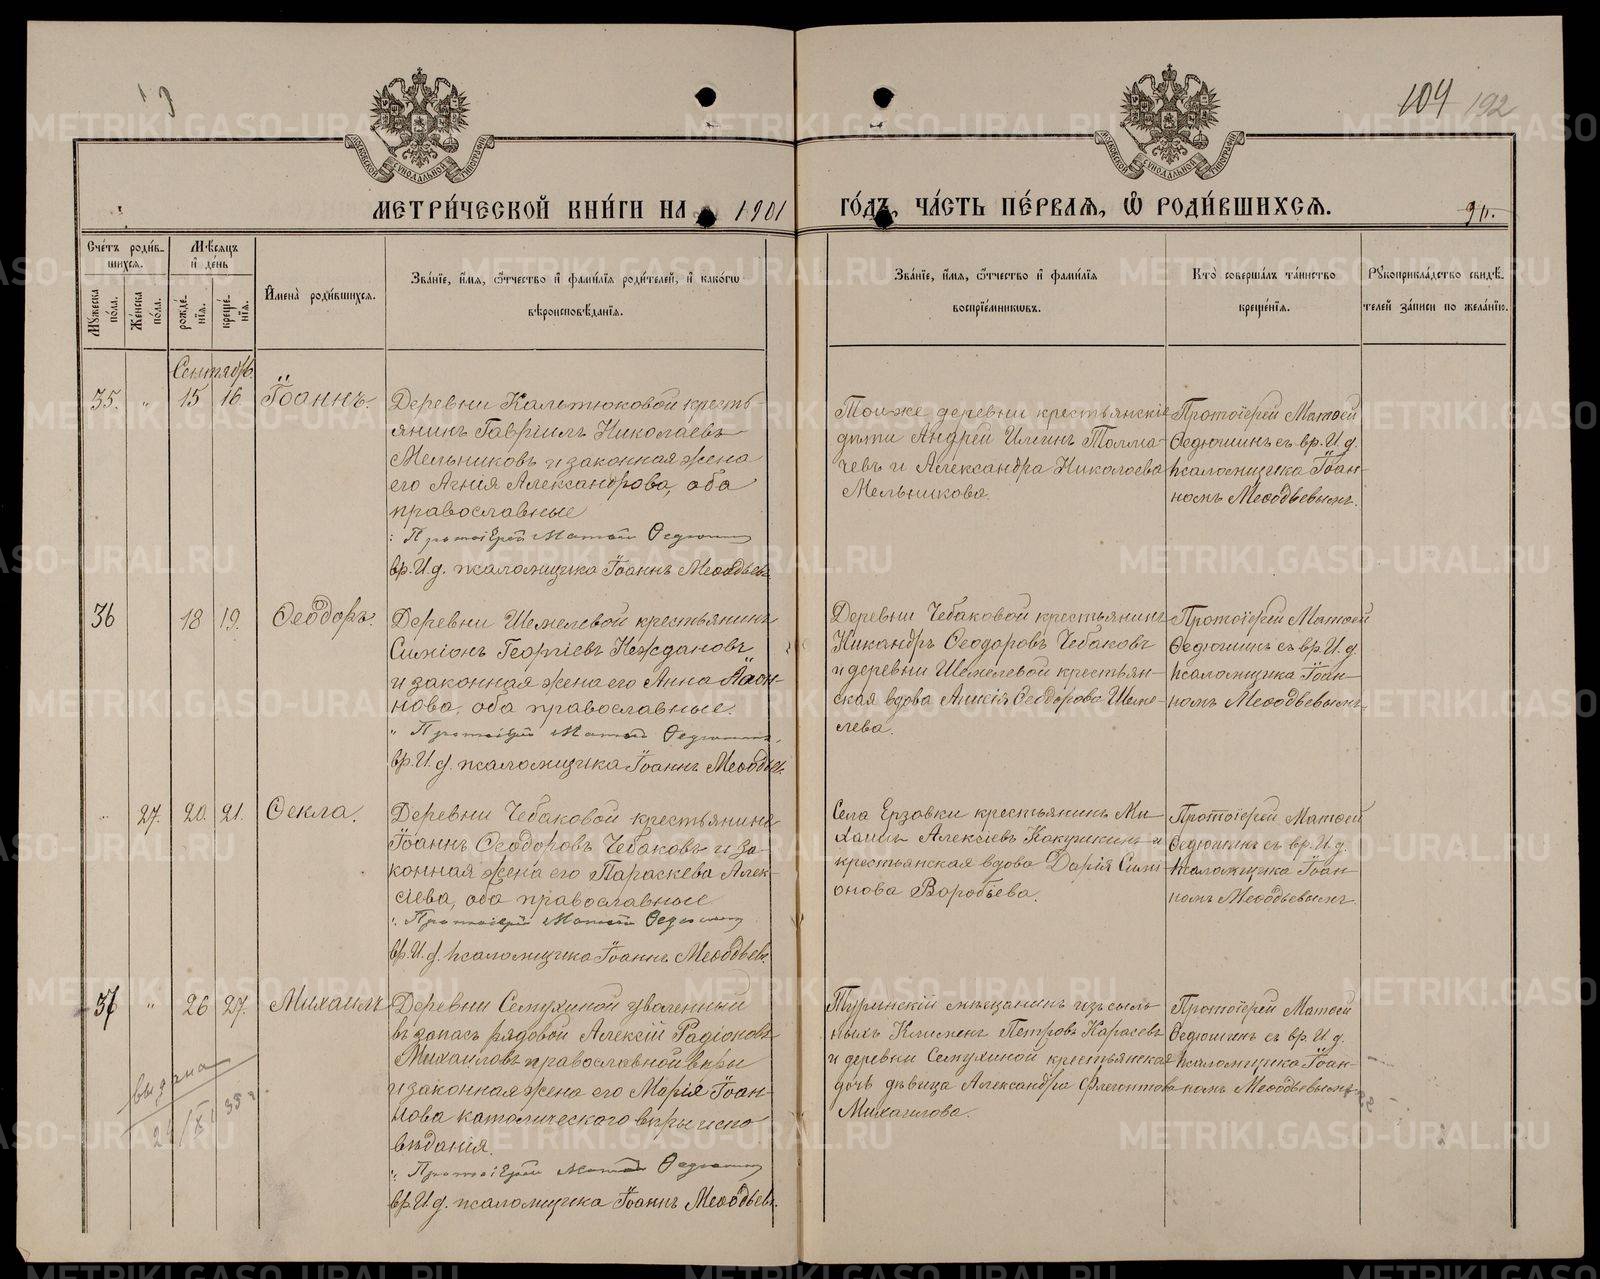 104 192
МОСКОВСКОЙ СѴНОДАЛЬНОЙ ТИПОГРАФІИ
МОСКОВСКОЙ СѴНОДАЛЬНОЙ ТИПОГРАФІИ
МЕТРИ́ЧЕСКОЙ КНИ́ГИ НА 1901 ГО́ДЪ, ЧА́СТЬ ПЕ́РВАѦ, Ѡ҆ РОДИ́ВШИХСѦ.
Сче́тъ роди́в-
шихсѧ.
Мѹ́жеска по́ла.
Же́нска по́ла.
Мѣ́сѧцъ
и҆ де́нь
рожде́-
нїѧ.
креще́-
нїѧ.
И҆мена̀ роди́вшихсѧ.
Зва́нїе, и҆́мѧ, ѻ҆́тчество и҆ фами́лїѧ роди́телей, и҆ како́гѡ
вѣроисповѣ́данїѧ.
Зва́нїе, и҆́мѧ, ѻ҆́тчество и҆ фами́лїѧ
воспрїе́мникѡвъ.
Кто̀ соверша́лъ та́инство
креще́нїѧ.
Рѹкоприкла́дство свидѣ́-
телей за́писи по жела́нїю.
Сентябрь
35. " 15 16 Іоаннъ.
Деревни Калтюковой кресть-
янинъ Гавріилъ Николаевъ
Мельниковъ и законная жена
его Агнія Александрова, оба
православные
Протоіерей Матѳей Ѳедюшинъ
вр. И. д. псаломщика Іоаннъ Меѳодьевъ
Той-же деревни крестьянскіе
дѣти Андрей Илiинъ Толма-
чевъ и Александра Николаева
Мельникова.
Протоіерей Матѳей
Ѳедюшинъ съ вр. И. д.
псаломщика Іоан-
номъ Меѳодьевымъ.
36 18 19. Ѳеодоръ.
Деревни Шемелевой крестьянинъ
Симіонъ Георгіевъ Неждановъ
и законная жена его Анна
нова, оба православные.
Протоіерей Матѳей Ѳедюшинъ
вр. И. д. псаломщика Іоаннъ Меѳодьевъ
Деревни Чебаковой крестьянинъ
Никандръ Ѳеодоровъ Чебаковъ
и деревни Шемелевой крестьян-
ская вдова Ѳеодорова Шеме-
лева.
Протоіерей Матѳей
Ѳедюшинъ съ вр. И. д.
псаломщика Іоан-
номъ Меѳодьевымъ.
27. 20. 21. Ѳекла.
Деревни Чебаковой крестьянинъ
Іоаннъ Ѳеодоровъ Чебаковъ и за-
конная жена его Параскева Алек-
сіева, оба православные
Протоіерей Матѳей Ѳедюшинъ
вр. И. д. псаломщика Іоаннъ Меѳодьевъ.
Села Ерзовки крестьянинъ Ми-
хаилъ Алексіевъ и
крестьянская вдова Дарія Симі-
онова Воробьева.
Протоіерей Матѳей
Ѳедюшинъ съ вр. И. д.
псаломщика Іоан-
номъ Меѳодьевымъ.
37 " 26 27. Михаилъ
Деревни Семухиной уволенный
въ запасъ рядовой Алексій Радіоновъ
Михаиловъ православной вѣры
и законная жена его Марія Іоан-
нова католическаго вѣроиспо-
вѣданія.
Протоіерей Матѳей Ѳедюшинъ
вр. И. д. псаломщика Іоаннъ Меѳодьевъ.
Туринскій мѣщанинъ изъ ссыль-
ныхъ Климентъ Петровъ Карасевъ
и деревни Семухиной крестьянская
дочь дѣвица Александра Флегонтова
Михаилова.
Протоіерей Матѳей
Ѳедюшинъ съ вр. И. д.
псаломщика Іоан-
номъ Меѳодьевымъ
выдана
METRIKI.GASO-URAL.RU